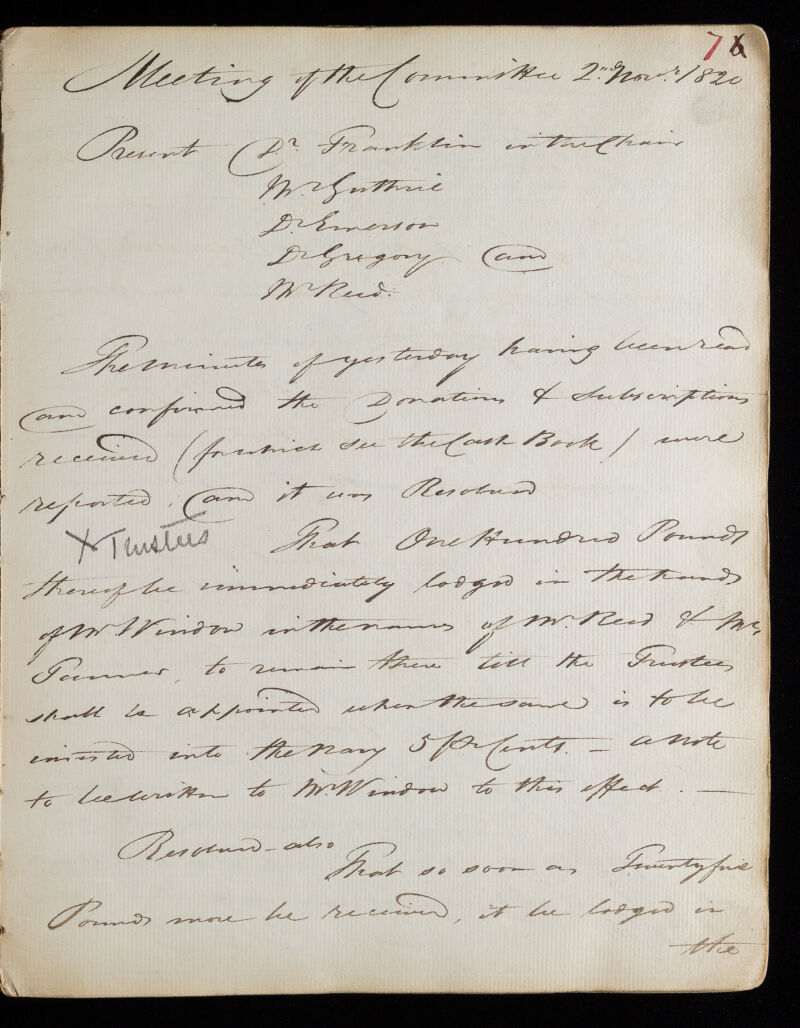 7 6
Meeting of the Committee 2nd Novr. 1820
Present Dr. Franklin in the Chair
Mr Guthrie
Dr. Emerson
Dr Gregory and
Mr Reid.
The minutes of yesterday having been read
and confirmed the Donations & Subscriptions
received (for which see the Cash Book) were
reported; and it was Resolved
X Trustees That One Hundred Pounds
thereof be immediately lodged in the hands
of Mr Windov in the names of Mr. Reid & Mr.
Tanner, to remain there till the Trustees
shall be appointed when the same is to be
invested into the Navy 5 Pr Cents. – a note
to be written to Mr. Windov to this effect. —
Resolved – also
That so soon as Twentyfive
Pounds more be received, it be lodged in
the